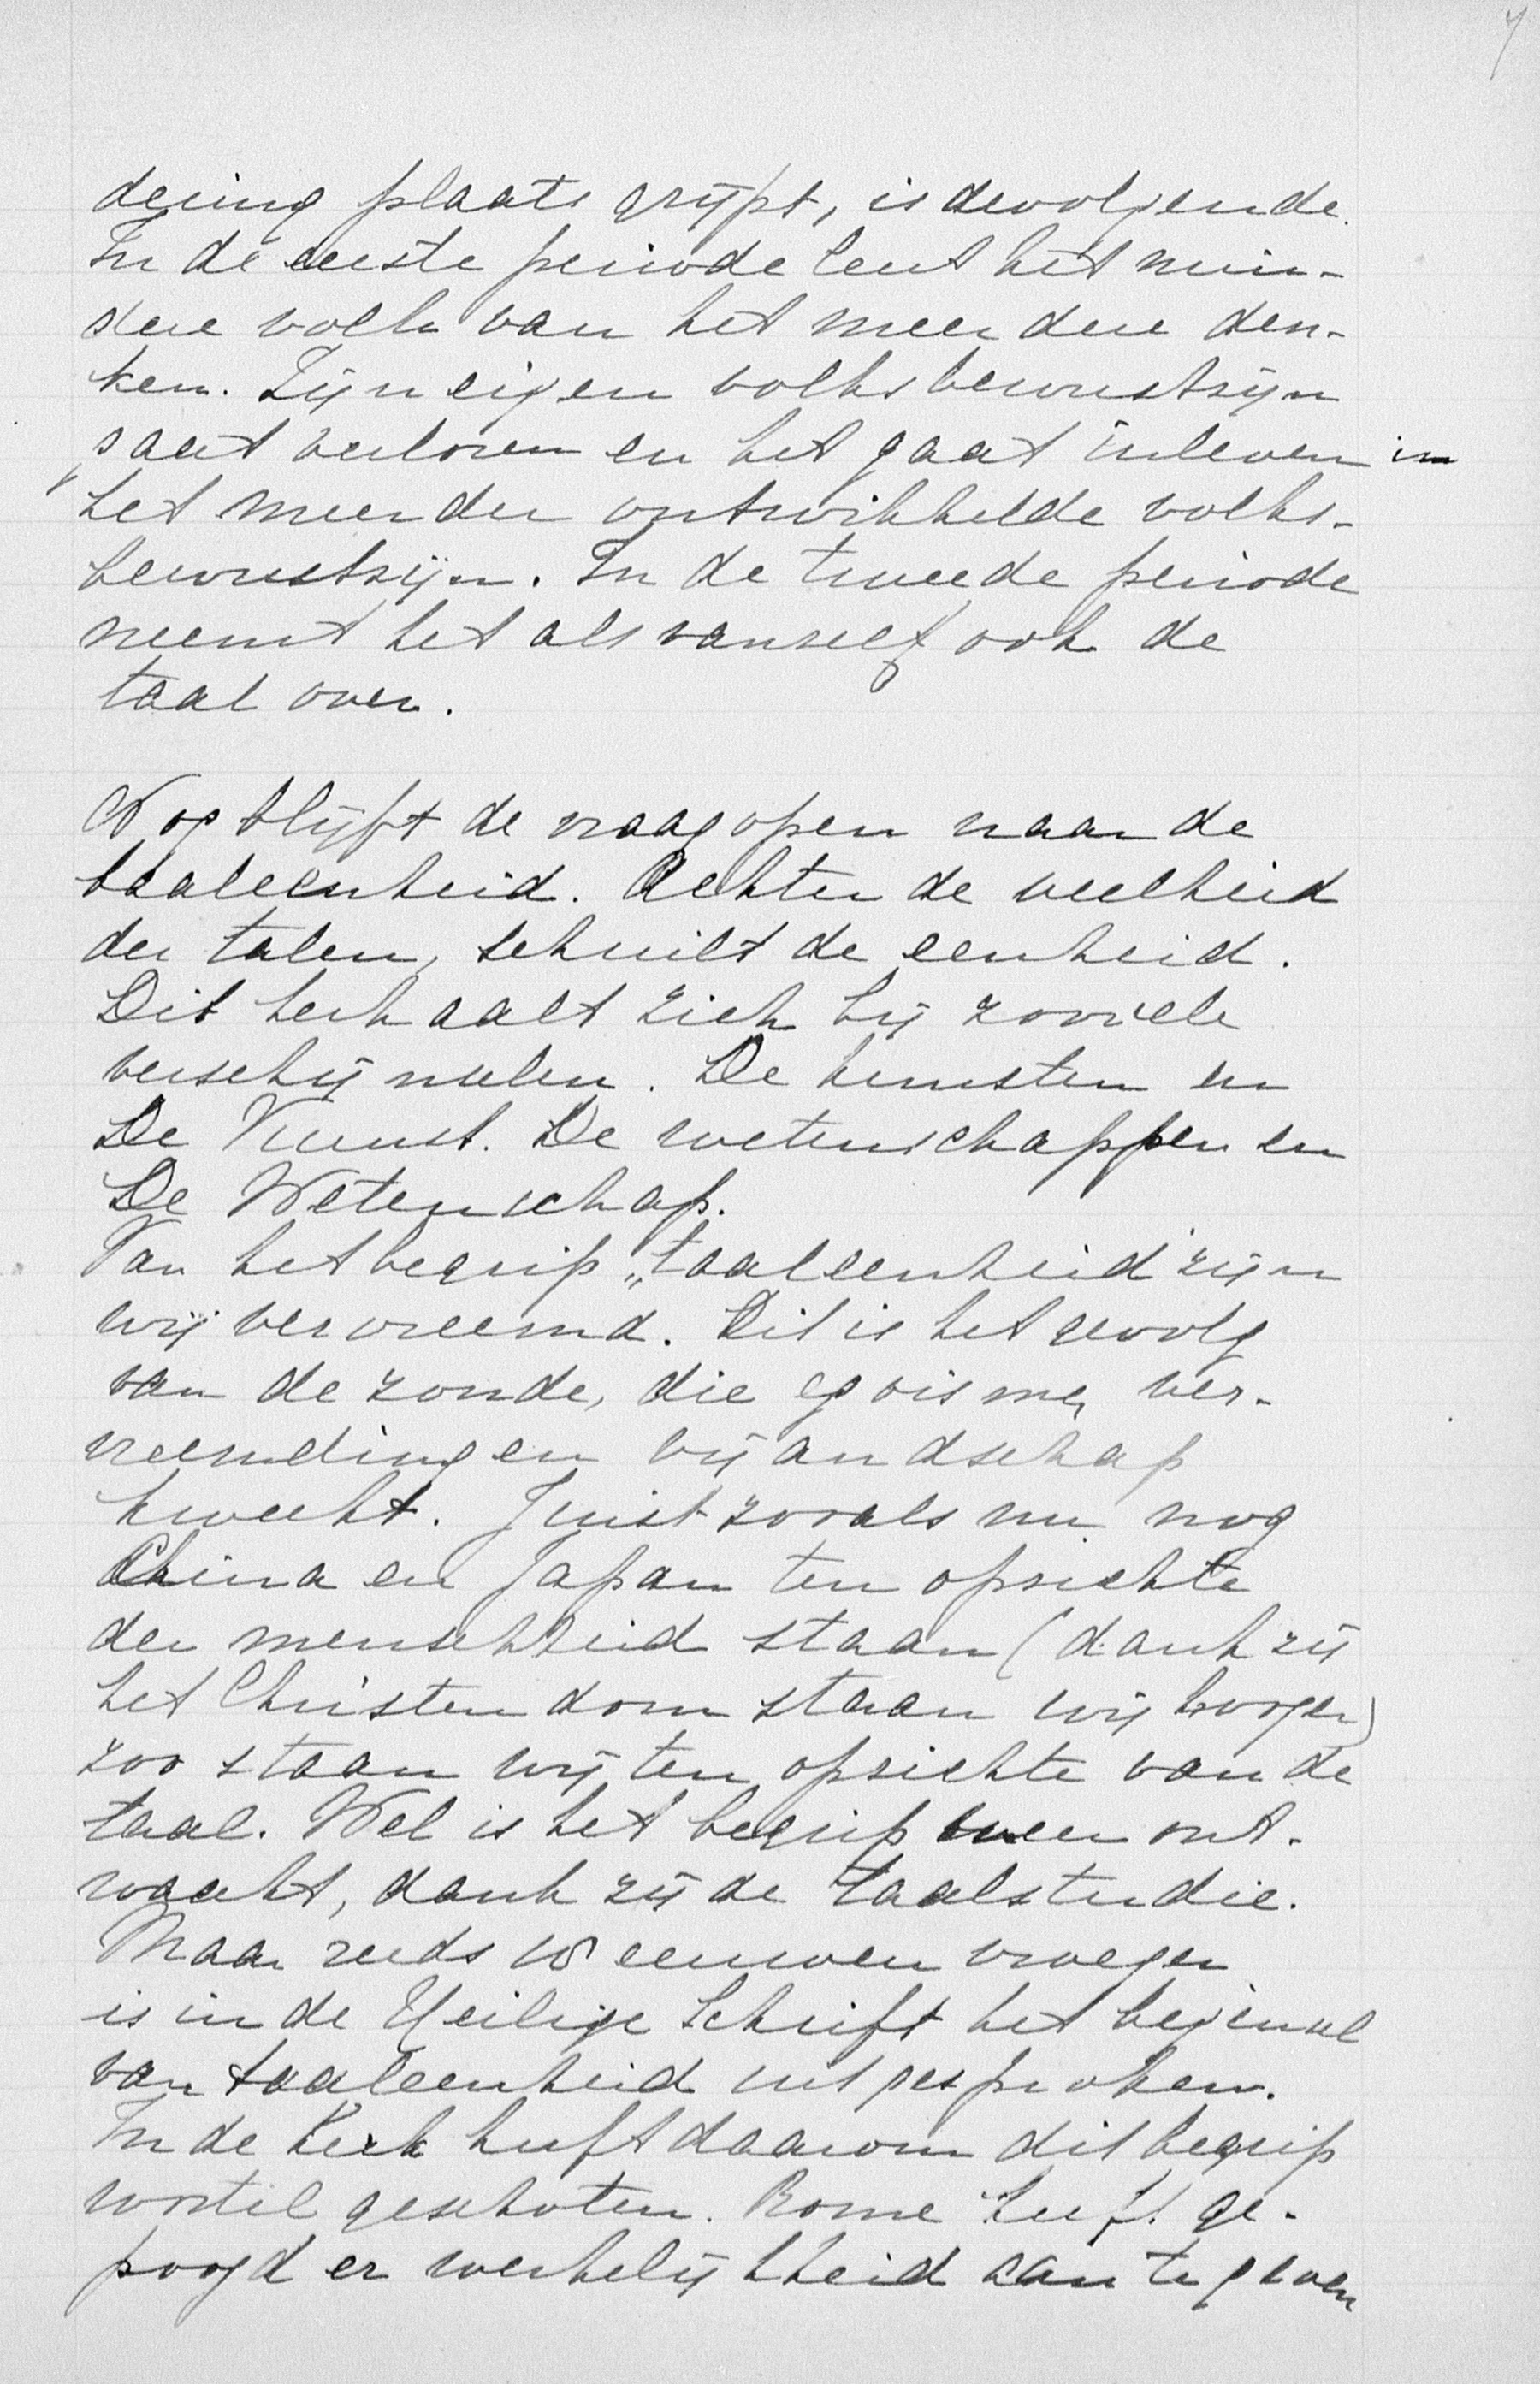 7
dering plaats grijpt, is de volgende.
In de eerste periode leert het min-
dere volk van het meerdere den-
ken. Zijn eigen volksbewustzijn
gaat verloren en het gaat inleven in
het meerder ontwikkelde volks-
bewustzijn. In de tweede periode
neemt het als vanzelf ook de
taal over.
Nog blijft de vraag open naar de
taaleenheid. Achter de veelheid
der talen, schuilt de eenheid.
Dit herhaalt zich bij zoovele
verschijnselen. De kunsten en
De Kunst. De wetenschappen en
De Wetenschap.
Van het begrip „taaleenheid" zijn
wij vervreemd. Dit is het gevolg
van de zonde, die egoisme, ver-
vreemding en vijandschap
kweekt. Juist zooals nu nog
China en Japan ten opzichte
der menschheid staan (dank zij
het Christendom staan wij hooger)
zoo staan wij ten opzichte van de
taal. Wel is het begrip weer ont-
waakt, dank zij de taalstudie.
Maar reeds eeuwen vroeger
is in de Heilige Schrift het beginsel
van taaleenheid uitgesproken.
In de Kerk heeft daarom dit begrip
wortel geschoten. Rome heeft ge-
poogd er werkelijkheid aan te geven